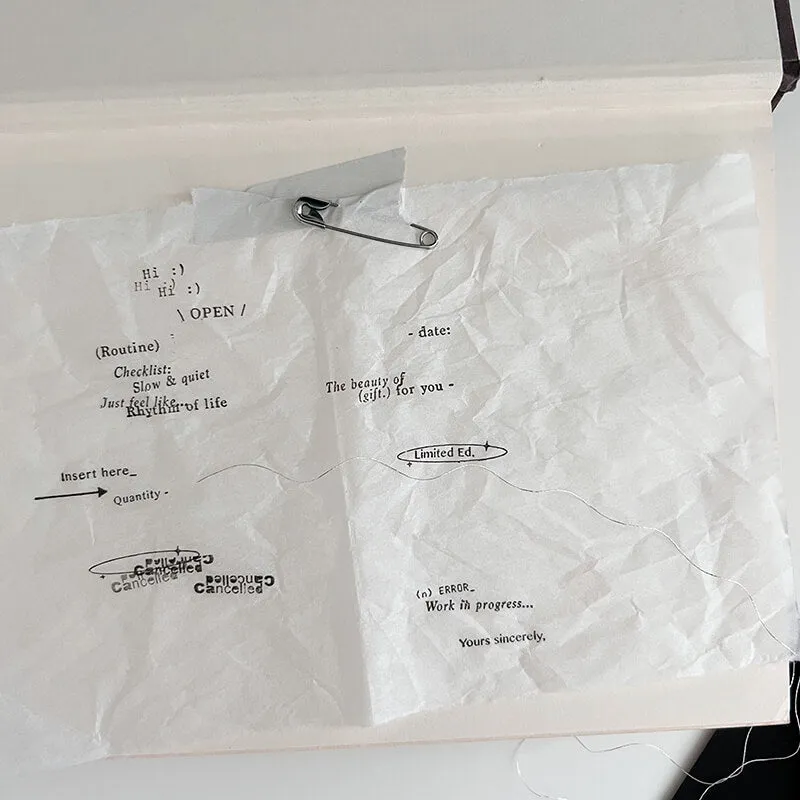 Hi :)
Hi :)
Hi :)
\ OPEN /
(Routine)
Checklist:
Slow & quiet
Just feel like...
Rhythm of life
Insert here_
Quantity -
Cancelled
Cancelled
Cancelled
Cancelled
Cancelled
- date:
The beauty of
(gift.) for you -
Limited Ed.
(n) ERROR_
Work in progress...
Yours sincerely,